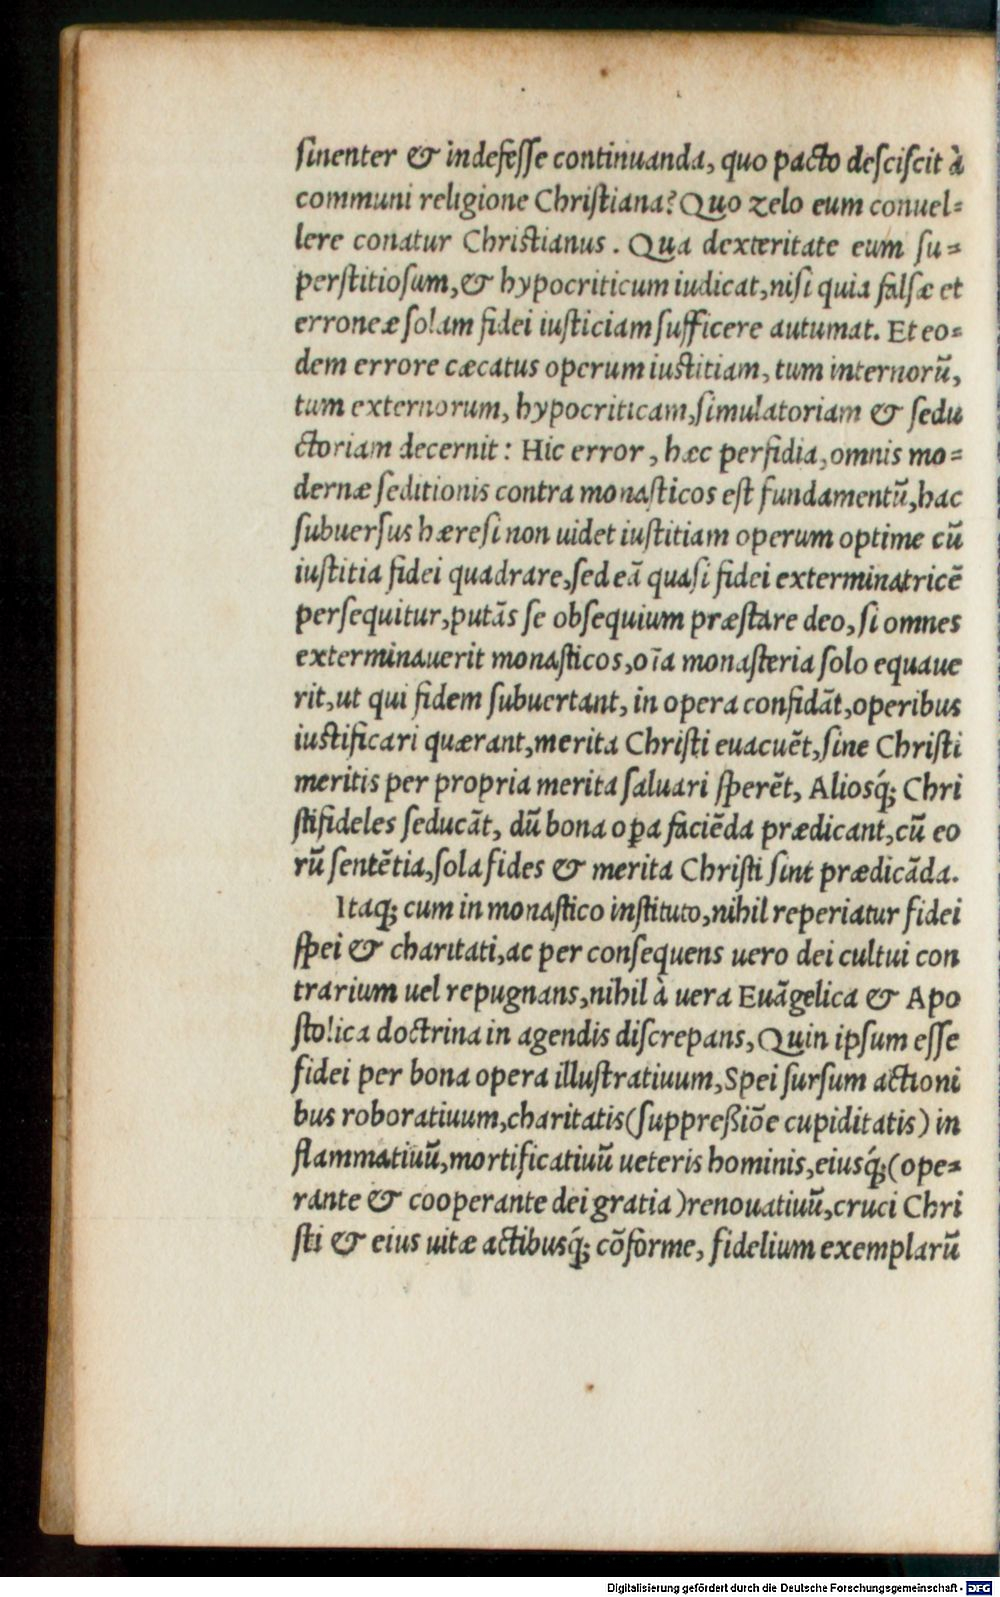 ſinenter & indefeſſe continuanda, quo pacto deſciſcit à
communi religione Chriſtiana? Quo zelo eum conuel⸗
lere conatur Chriſtianus. Qua dexteritate eum ſu⸗
perſtitioſum, & hypocriticum iudicat, niſi quia falſæ et
erroneæ ſolam fidei iuſticiam ſufficere autumat. Et eo⸗
dem errore cæcatus operum iuſtitiam, tum internorū,
tum externorum, hypocriticam, ſimulatoriam & ſedu
ctoriam decernit: Hic error, hæc perfidia, omnis mo⸗
dernæ ſeditionis contra monaſticos eſt fundamentū, hac
ſubuerſus hæreſi non uidet iuſtitiam operum optime cū
iuſtitia fidei quadrare, ſed eā quaſi fidei exterminatricē
perſequitur, putās ſe obſequium præſtare deo, ſi omnes
exterminauerit monaſticos, oīa monaſteria ſolo equaue
rit, ut qui fidem ſubuertant, in opera confidāt, operibus
iuſtificari quærant, merita Chriſti euacuēt, ſine Chriſti
meritis per propria merita ſaluari ſperēt, Alioſq́; Chri
ſtifideles ſeducāt, dū bona oꝑa faciēda prædicant, cū eo
rū ſentētia, ſola fides & merita Chriſti ſint prædicāda.
Itaq; cum in monaſtico inſtituto, nihil reperiatur fidei
ſpei & charitati, ac per conſequens uero dei cultui con
trarium uel repugnans, nihil à uera Euāgelica & Apo
ſtolica doctrina in agendis diſcrepans, Quin ipſum eſſe
fidei per bona opera illuſtratiuum, Spei ſurſum actioni
bus roboratiuum, charitatis (ſuppreßiōe cupiditatis) in
flammatiuū, mortificatiuū ueteris hominis, eiusq́; (ope⸗
rante & cooperante dei gratia) renouatiuū, cruci Chri
ſti & eius uitæ actibusq́; cōforme, fidelium exemplarū
Digitalisierung gefördert durch die Deutsche Forschungsgemeinschaft - DFG